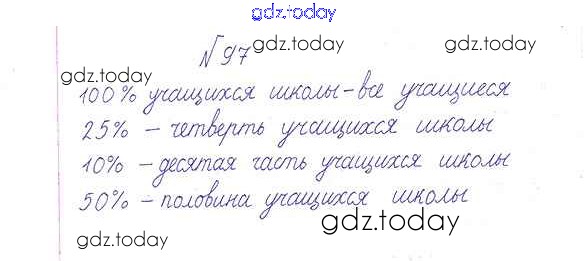 gdz.today
№97
gdz.today
gdz.today
gdz.today
100% учащихся школы - все учащиеся
25% - четверть учащихся школы
10% - десятая часть учащихся школы
50% - половина учащихся школы
gdz.today
gdz.today
gdz.today